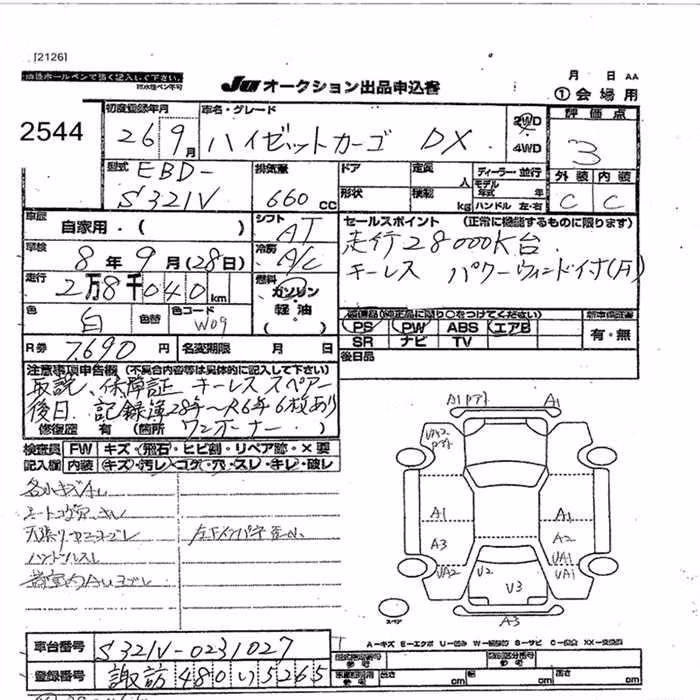 [2126]
油性ボールペンで強く記入して下さい。
JU オークション出品申込書
月 日 AA
① 会場用
2544
初度登録年月 26 9月
車名・グレード ハイゼットカーゴ DX
2WD
4WD
評価点 3
型式 EBD-S321V
排気量 660 cc
ドア
定員 人
形状
積載 kg
ディーラー・並行
モデル年式 年
ハンドル 左・右
外装 C
内装 C
車歴 自家用・( )
シフト AT
セールスポイント (正常に機能するものに限ります)
走行28000K台.
キーレス パワーウィンド付(月)
車検 8年 9月(28日)
冷房 A/C
走行 2万8千040km
燃料 ガソリン
軽油
( )
色 白
色替
カラーコード W09
装備品(純正品に限り○をつけてください)
PS PW ABS エアB
SR ナビ TV
新車保証書
有・無
R券 7,690円
名変期限 月 日
後日品
注意事項申告欄 (不具合内容等は具体的に記入して下さい)
取説、保障証 キーレス スペアー
後日. 記録簿28年〜R6年6枚あり
修復歴 有 (箇所 ワンオーナー. )
検査員記入欄
FW キズ・飛石・ヒビ割・リペア跡・×要
内装 キズ・汚レ・コゲ・穴・スレ・キレ・破レ
A1
A1
UA2
A1
A3
UA2
U2
V3
A1
A2
UA1
UA1
A3
スペア
A-キズ E-エクボ U-凹み W-補修跡 S-サビ C-腐食 XX-交換済
車台番号 S321V-0231027
登録番号 諏訪 480 い 5265
型式指定番号 参考
類別区分番号 参考
長さ cm
幅 cm
高さ cm